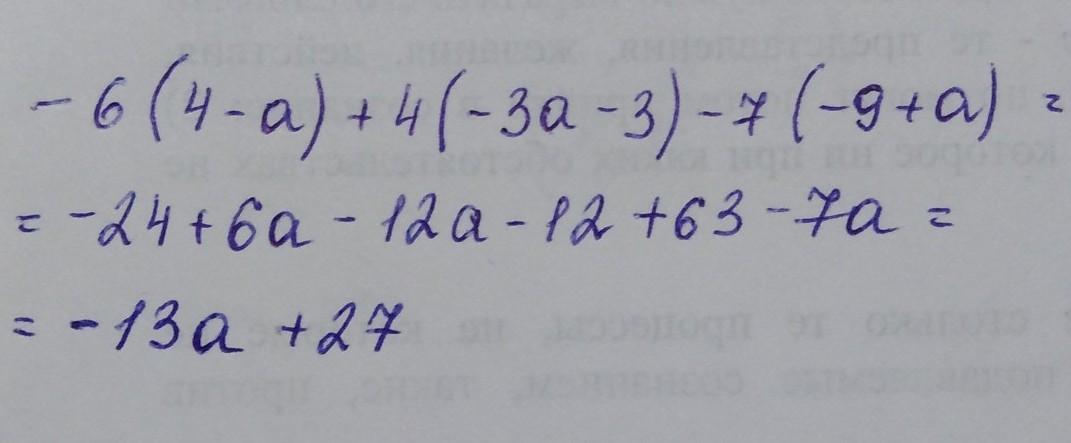 - 6 (4 - a) + 4 (-3a - 3) - 7 (-9 + a) =
= -24 + 6a - 12a - 12 + 63 - 7a =
= -13a + 27